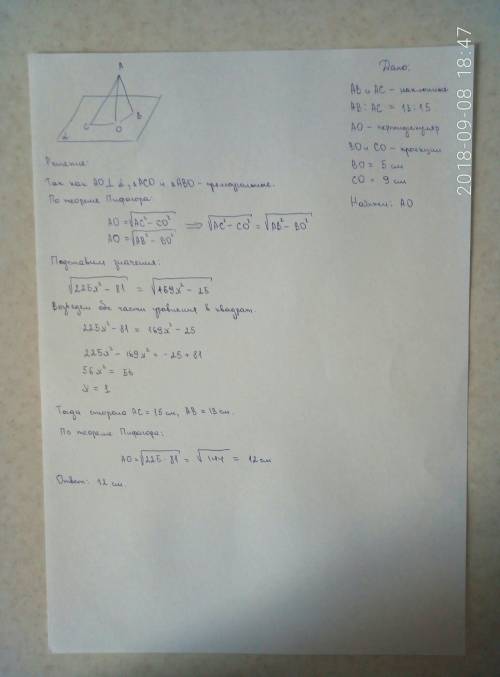 A
C
O
B
α
Дано:
AB и AC - наклонные
AB : AC = 13 : 15
AO - перпендикуляр
BO и CO - проекции
BO = 5 см
CO = 9 см
Найти: AO
Решение:
Так как AO ⊥ α, ΔACO и ΔABO - прямоугольные.
По теореме Пифагора:
AO = √(AC² - CO²) ⇒ √(AC² - CO²) = √(AB² - BO²)
AO = √(AB² - BO²)
Подставим значения:
√(225x² - 81) = √(169x² - 25)
Возведем обе части уравнения в квадрат.
225x² - 81 = 169x² - 25
225x² - 169x² = -25 + 81
56x² = 56
x = 1
Тогда сторона AC = 15 см, AB = 13 см.
По теореме Пифагора:
AO = √(225 - 81) = √144 = 12 см
Ответ: 12 см.
2018-09-08 18:47